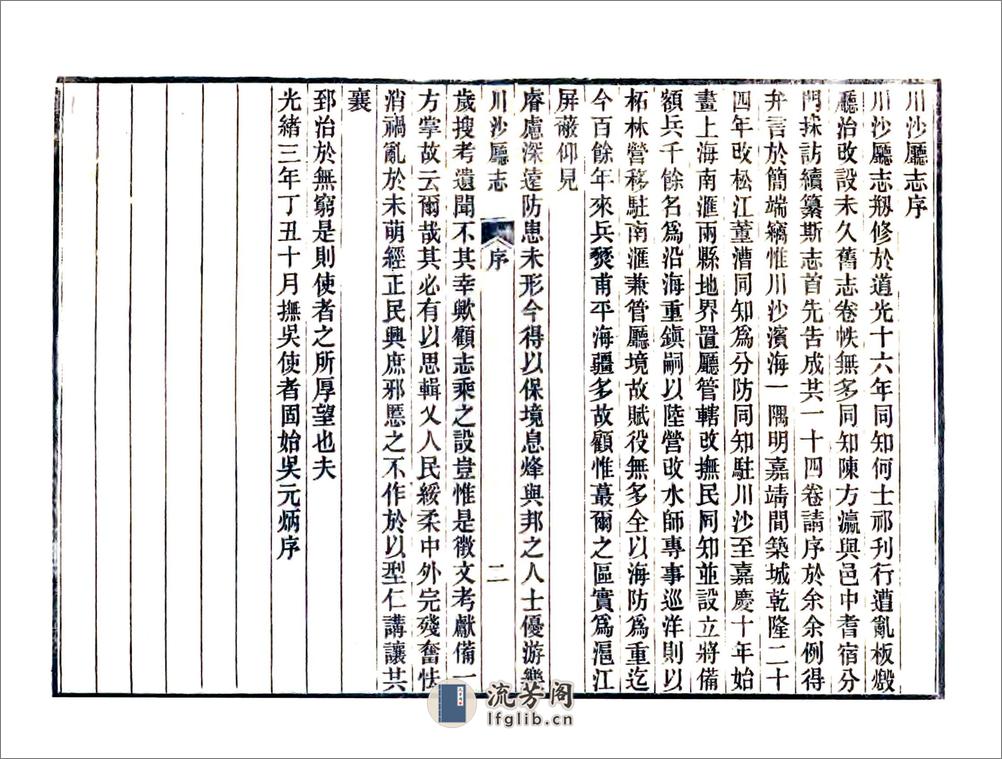 川沙廳志序
川沙廳志刱修於道光十六年同知何士祁刊行遭亂板燬
廳治改設未久舊志卷帙無多同知陳方瀛與邑中耆宿分
門採訪續纂斯志首先告成共一十四卷請序於余余例得
弁言於簡端竊惟川沙濱海一隅明嘉靖間築城乾隆二十
四年改松江董漕同知爲分防同知駐川沙至嘉慶十年始
畫上海南滙兩縣地界置廳管轄改撫民同知並設立將備
額兵千餘名爲沿海重鎮嗣以陸營改水師專事巡洋則以
柘林營移駐南滙兼管廳境故賦役無多全以海防爲重迄
今百餘年來兵燹甫平海疆多故顧惟蕞爾之區實爲滬江
屏蔽仰見
睿慮深遠防患未形今得以保境息烽與邦之人士優游樂
川沙廳志 序 二
歲搜考遺聞不其幸歟顧志乘之設豈惟是徵文考獻備一
方掌故云爾哉其必有以思輯乂人民綏柔中外完殘奮怯
消禍亂於未萌經正民興庶邪慝之不作於以型仁講讓共
襄
郅治於無窮是則使者之所厚望也夫
光緒三年丁丑十月撫吳使者固始吳元炳序
流芳阁
lfglib.cn